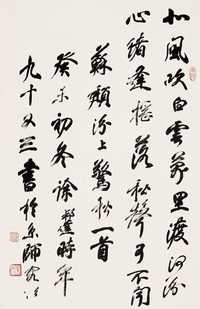 北風吹白雲萬里渡河汾
心緒逢搖落秋聲可不聞
蘇頲汾上驚秋一首
癸未初冬徐邦達時年
九十又三書於京師寓次